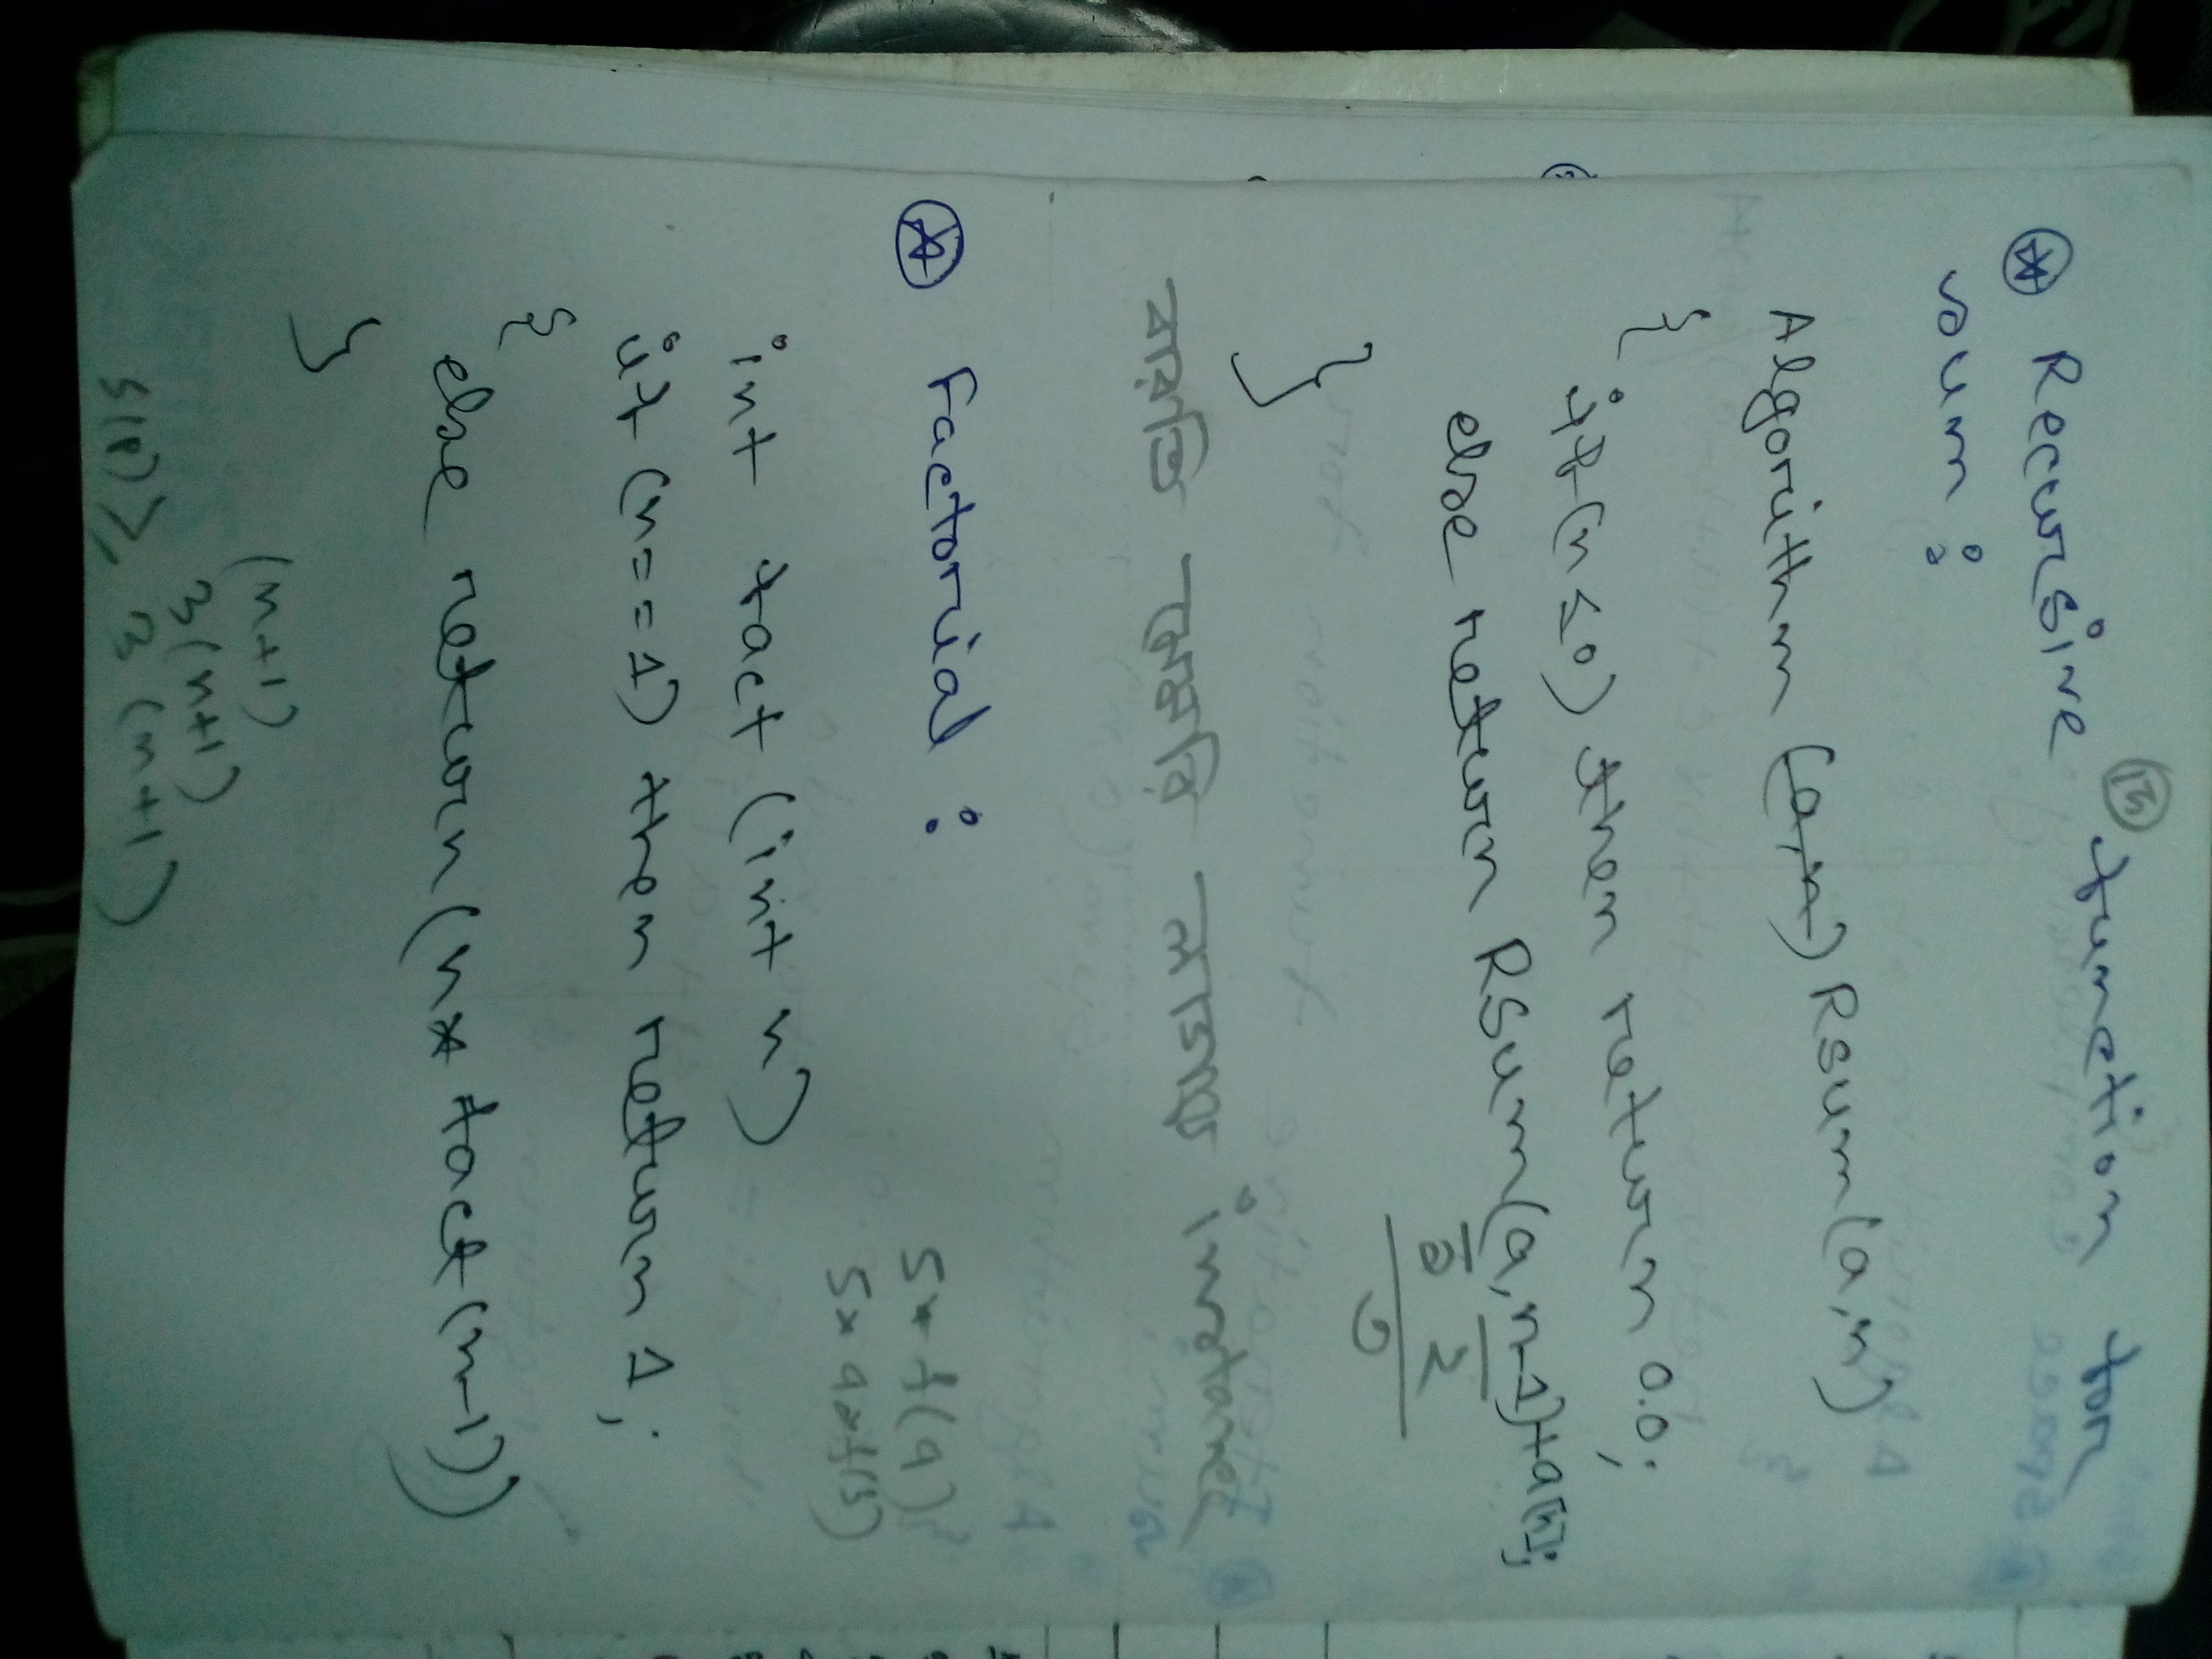 15
Recursive function for
sum :
Algorithm (a,n) RSum(a,n)
{
if (n ≤ 0) then return 0.0;
else return RSum(a, n-1)+a[n];
2 2
}
instance
Factorial :
5* f(4)
int fact (int n)
5* 4*f(3)
if (n == 1) then return 1;
{
else return (n* fact (n-1))
}
(n+1)
3(n+1)
3 (n+1)